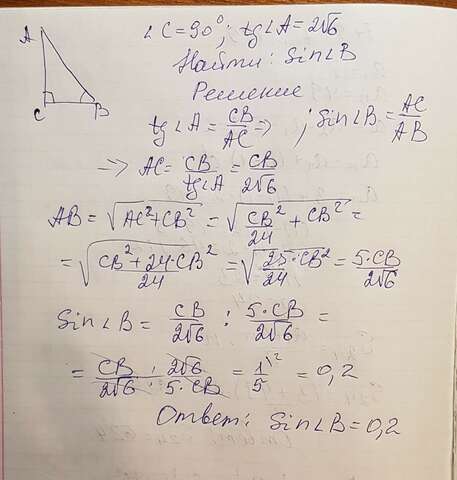 ∠C=90°; tg∠A=2√6
A
Найти: Sin∠B
Решение
C B
tg∠A = CB/AC => ; Sin∠B = AC/AB
=> AC = CB/tg∠A = CB/2√6
AB = √(AC²+CB²) = √(CB²/24 + CB²) =
= √((CB²+24·CB²)/24) = √(25·CB²/24) = 5·CB/2√6
Sin∠B = CB/2√6 : 5·CB/2√6 =
= CB/2√6 · 2√6/5·CB = 1\²/5 = 0,2
Ответ: Sin∠B=0,2